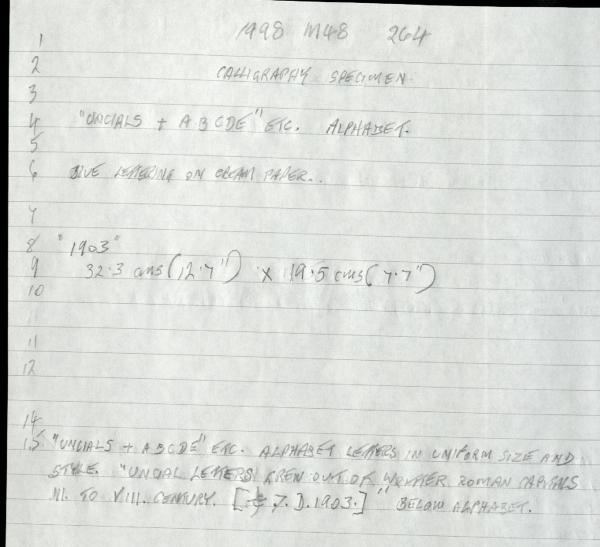 1998 M48 264
1
2 CALLIGRAPHY SPECIMEN.
3
4 "UNCIALS + ABCDE" ETC. ALPHABET.
5
6 LETTERING ON CREAM PAPER..
7
8 "1903"
9 32.3 cms (12.7") x 19.5 cms (7.7")
10
11
12
14
15 "UNCIALS + ABCDE" ETC. ALPHABET LETTERS IN UNIFORM SIZE AND
STYLE. "UNCIAL LETTERS GREW OUT OF WRITTEN ROMAN CAPITALS
III. TO VIII. CENTURY. [ 7. D. 1903.]" BELOW ALPHABET.